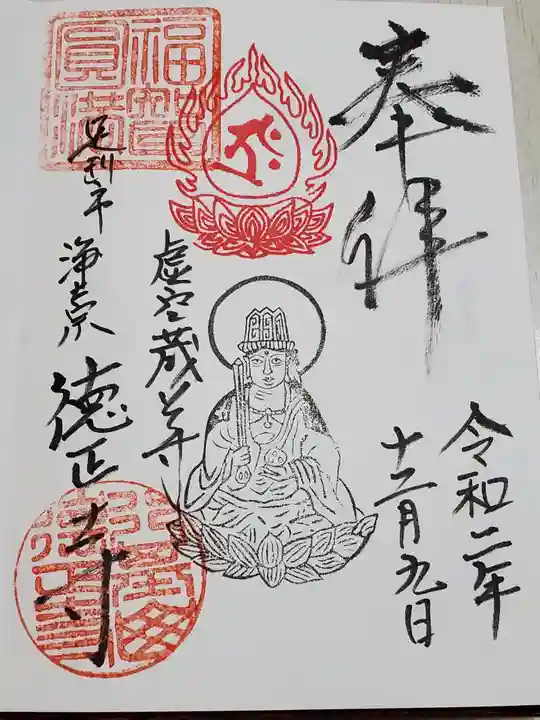 奉拝
令和二年
十二月九日
虚空蔵尊
福智
圓満
足利市 浄土宗 徳正寺